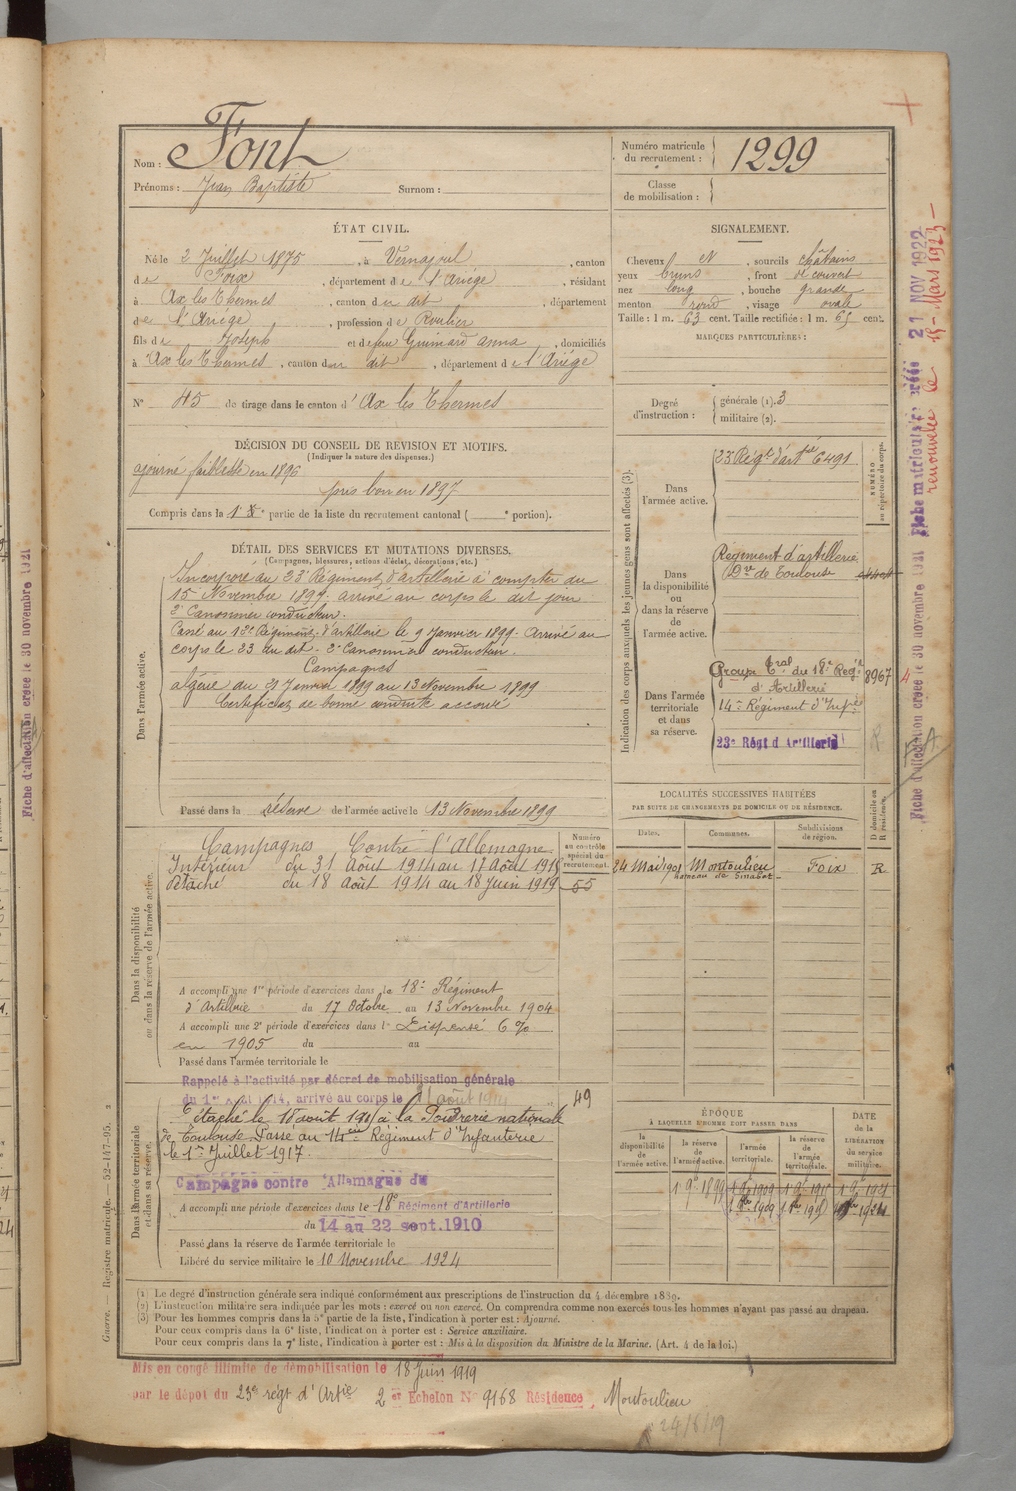 Nom : Font
Prénoms : Jean Baptiste Surnom :
Numéro matricule du recrutement : 1299
Classe de mobilisation :
ÉTAT CIVIL.
Né le 2 Juillet 1875, à Vernajoul, canton
de Foix, département de l'Ariége, résidant
à Ax les Thermes, canton du dit, département
de l'Ariége, profession de Roulier
fils de Joseph et de feue Guimard anna, domiciliés
à Ax les Thermes, canton du dit, département de l'Ariége
N° 45 de tirage dans le canton d'Ax les Thermes
SIGNALEMENT.
Cheveux N, sourcils châtains
yeux bruns, front découvert
nez long, bouche grande
menton rond, visage ovale
Taille : 1 m. 63 cent. Taille rectifiée : 1 m. 65 cent.
MARQUES PARTICULIÈRES :
Degré d'instruction : générale (1). 3
militaire (2).
DÉCISION DU CONSEIL DE REVISION ET MOTIFS.
(Indiquer la nature des dispenses.)
ajourné faiblesse en 1896
pris bon en 1897
Compris dans la 1e partie de la liste du recrutement cantonal ( e portion).
DÉTAIL DES SERVICES ET MUTATIONS DIVERSES.
(Campagnes, blessures, actions d'éclat, décorations, etc.)
Dans l'armée active.
Incorporé au 23e Régiment d'artillerie à compter du
15 Novembre 1897. arrivé au corps le dit jour
2e Canonnier conducteur.
Passé au 12e Régiment d'artillerie le 9 Janvier 1899. Arrivé au
corps le 23 du dit. 2e Canonnier conducteur.
Campagnes
algérie du 21 Janvier 1899 au 13 Novembre 1899
Certificat de bonne conduite accordé
Passé dans la réserve de l'armée active le 13 Novembre 1899
Indication des corps auxquels les jeunes gens sont affectés (3).
NUMÉRO au répertoire du corps.
Dans l'armée active.
23 Régt d'artie 6491
Dans la disponibilité ou dans la réserve de l'armée active.
Régiment d'artillerie
Don de Toulouse
Dans l'armée territoriale et dans sa réserve.
Groupe tral du 18e Régt 8967
d'Artillerie
14e Régiment d'Infie
23e Régt d'Artillerie
R
LOCALITÉS SUCCESSIVES HABITÉES
PAR SUITE DE CHANGEMENTS DE DOMICILE OU DE RÉSIDENCE.
Dates. Communes. Subdivisions de région. D domicile ou R résidence.
24 Mai 1901 Montoulieu Foix R
hameau de Ginabat
Dans la disponibilité ou dans la réserve de l'armée active.
Numéro au contrôle spécial du recrutement.
Campagnes Contre l'Allemagne.
Intérieur du 31 Août 1914 au 17 Août 1915
détaché du 18 Août 1914 au 18 Juin 1919
55
A accompli une 1re période d'exercices dans le 18e Régiment
d'Artillerie du 17 Octobre au 13 Novembre 1904
A accompli une 2e période d'exercices dans l Dispensé 6 %
en 1905 du au
Passé dans l'armée territoriale le
Dans l'armée territoriale et dans sa réserve.
Rappelé à l'activité par décret de mobilisation générale
du 1er Août 1914, arrivé au corps le 31 août 1914
49
Détaché le 18 août 1915 à la Poudrerie nationale
de Toulouse. Passe au 14eme Régiment d'Infanterie
le 1er Juillet 1917.
Campagne contre l'Allemagne du
A accompli une période d'exercices dans le 18e Régiment d'Artillerie
du 14 au 22 sept. 1910
Passé dans la réserve de l'armée territoriale le
Libéré du service militaire le 10 Novembre 1924
ÉPOQUE
À LAQUELLE L'HOMME DOIT PASSER DANS
la disponibilité de l'armée active. la réserve de l'armée active. l'armée territoriale. la réserve de l'armée territoriale. DATE de la LIBÉRATION du service militaire.
(1) Le degré d'instruction générale sera indiqué conformément aux prescriptions de l'instruction du 4 décembre 1889.
(2) L'instruction militaire sera indiquée par les mots : exercé ou non exercé. On comprendra comme non exercés tous les hommes n'ayant pas passé au drapeau.
(3) Pour les hommes compris dans la 5e partie de la liste, l'indication à porter est : Ajourné.
Pour ceux compris dans la 6e liste, l'indication à porter est : Service auxiliaire.
Pour ceux compris dans la 7e liste, l'indication à porter est : Mis à la disposition du Ministre de la Marine. (Art. 4 de la loi.)
Mis en congé illimité de démobilisation le 18 Juin 1919
par le dépôt du 23e régt d'Artie 2er Echelon N° 9168 Résidence, Montoulieu
24/6/19
Guerre. — Registre matricule. — 52-147-95.
Fiche matriculaire créée 21 NOV 1922
renouvelée le 15 - Mars 1923 -
Fiche d'affectation créée le 30 novembre 1921
Fiche d'affection créée le 30 novembre 1921